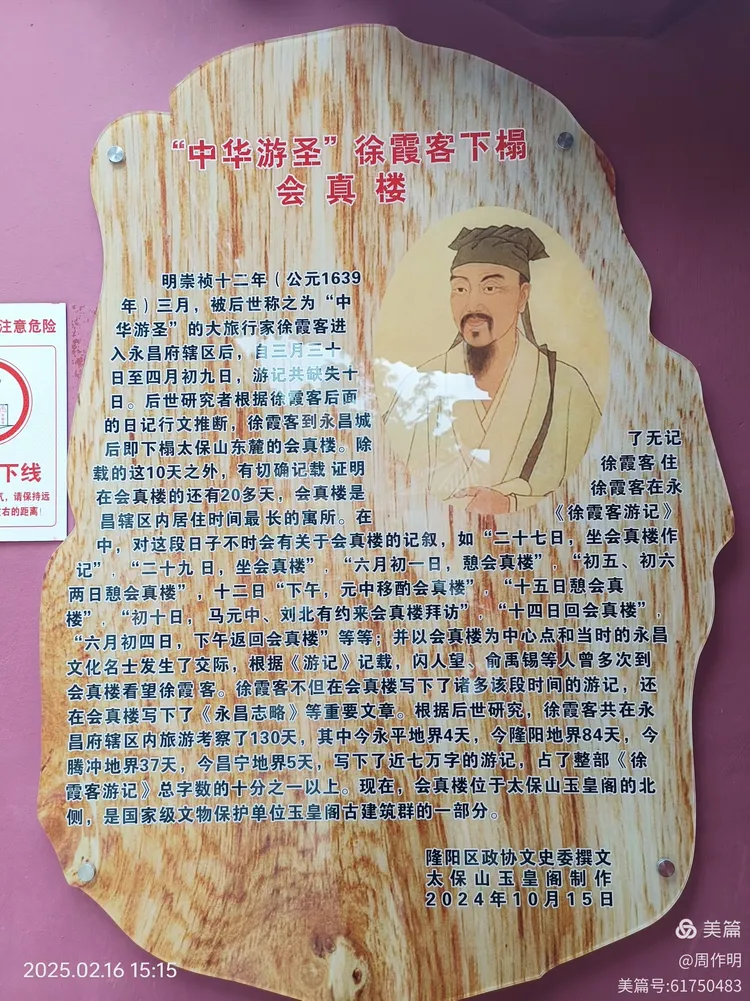 “中华游圣”徐霞客下榻
会真楼
明崇祯十二年（公元1639
年）三月，被后世称之为“中
华游圣”的大旅行家徐霞客进
入永昌府辖区后，自三月三十
日至四月初九日，游记共缺失十
日。后世研究者根据徐霞客后面
的日记行文推断，徐霞客到永昌城
后即下榻太保山东麓的会真楼。除了无记
载的这10天之外，有切确记载 证明徐霞客住
在会真楼的还有20多天，会真楼是徐霞客在永
昌辖区内居住时间最长的寓所。在《徐霞客游记》
中，对这段日子不时会有关于会真楼的记叙，如“二十七日，坐会真楼作
记”，“二十九日，坐会真楼”，“六月初一日，憩会真楼”，“初五、初六
两日憩会真楼”，十二日“下午，元中移酌会真楼”，“十五日憩会真
楼”，“初十日，马元中、刘北有约来会真楼拜访”，“十四日回会真楼”，
“六月初四日，下午返回会真楼”等等；并以会真楼为中心点和当时的永昌
文化名士发生了交际，根据《游记》记载，闪人望、俞禹锡等人曾多次到
会真楼看望徐霞客。徐霞客不但在会真楼写下了诸多该段时间的游记，还
在会真楼写下了《永昌志略》等重要文章。根据后世研究，徐霞客共在永
昌府辖区内旅游考察了130天，其中今永平地界4天，今隆阳地界84天，今
腾冲地界37天，今昌宁地界5天，写下了近七万字的游记，占了整部《徐
霞客游记》总字数的十分之一以上。现在，会真楼位于太保山玉皇阁的北
侧，是国家级文物保护单位玉皇阁古建筑群的一部分。
隆阳区政协文史委撰文
太保山玉皇阁制作
2024年10月15日
注意危险
下线
气，请保持远
右的距离！
2025.02.16 15:15
美篇
@周作明
美篇号:61750483